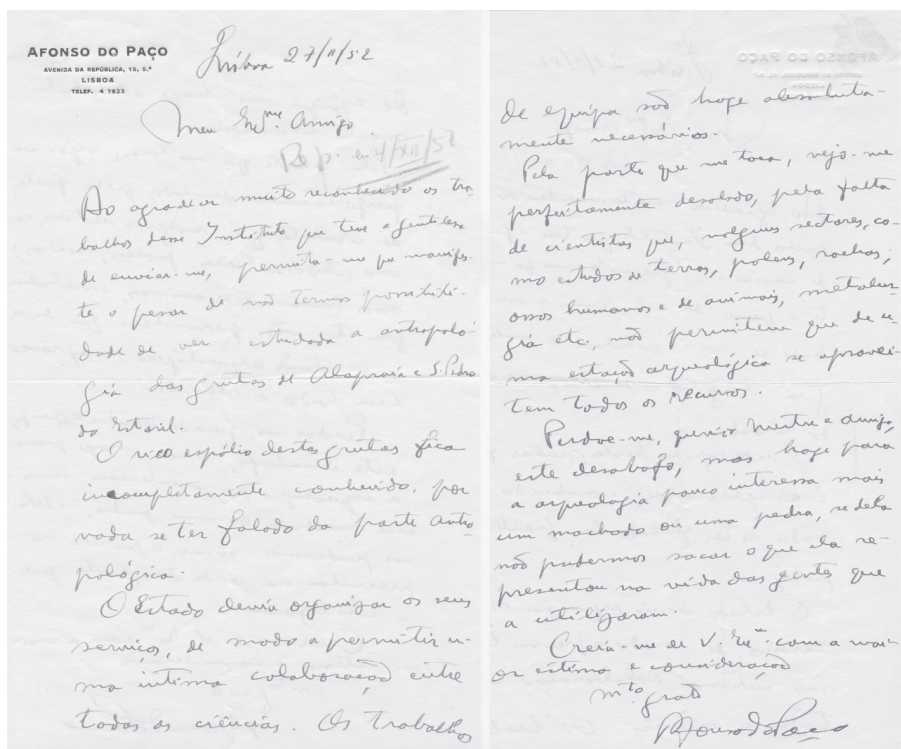 AFONSO DO PAÇO
AVENIDA DA REPÚBLICA, 15, 5.º
LISBOA
TELEF. 4 7833
Lisboa 27/11/52
Meu Ex.mo Amigo.
Resp. em 4/XII/52
Ao agradecer muito reconhecido os tra-
balhos desse Instituto que teve a gentilesa
de enviar-me, permita-me que manifes-
te o pesar de não termos possibili-
dade de ver estudada a antropolo-
gia das grutas de Alapraia e S. Pedro
do Estoril.
O rico espólio destas grutas fica
incompletamente conhecido, por
nada se ter falado da parte antro-
pológica.
O Estado devia organizar os seus
serviços, de modo a permitir u-
ma intima colaboração entre
todas as ciências. Os trabalhos
de equipa são hoje absoluta-
mente necessários.
Pela parte que me toca, vejo-me
perfeitamente desolado, pela falta
de cientistas que, nalguns sectores, co-
mo estudos de terras, polens, rochas,
ossos humanos e de animais, metalur-
gia etc, não permitem que de u-
ma estação arqueológica se aprovei-
tem todos os recursos.
Perdoe-me, querido Mestre e amigo,
este desabafo, mas hoje para
a arqueologia pouco interessa mais
um machado ou uma pedra, se dela
não pudermos sacar o que ela re-
presentou na vida das gentes que
a utilizaram.
Creia-me de V. Ex.ª com a mai-
or estima e consideração
m.to grato
Afonso do Paço